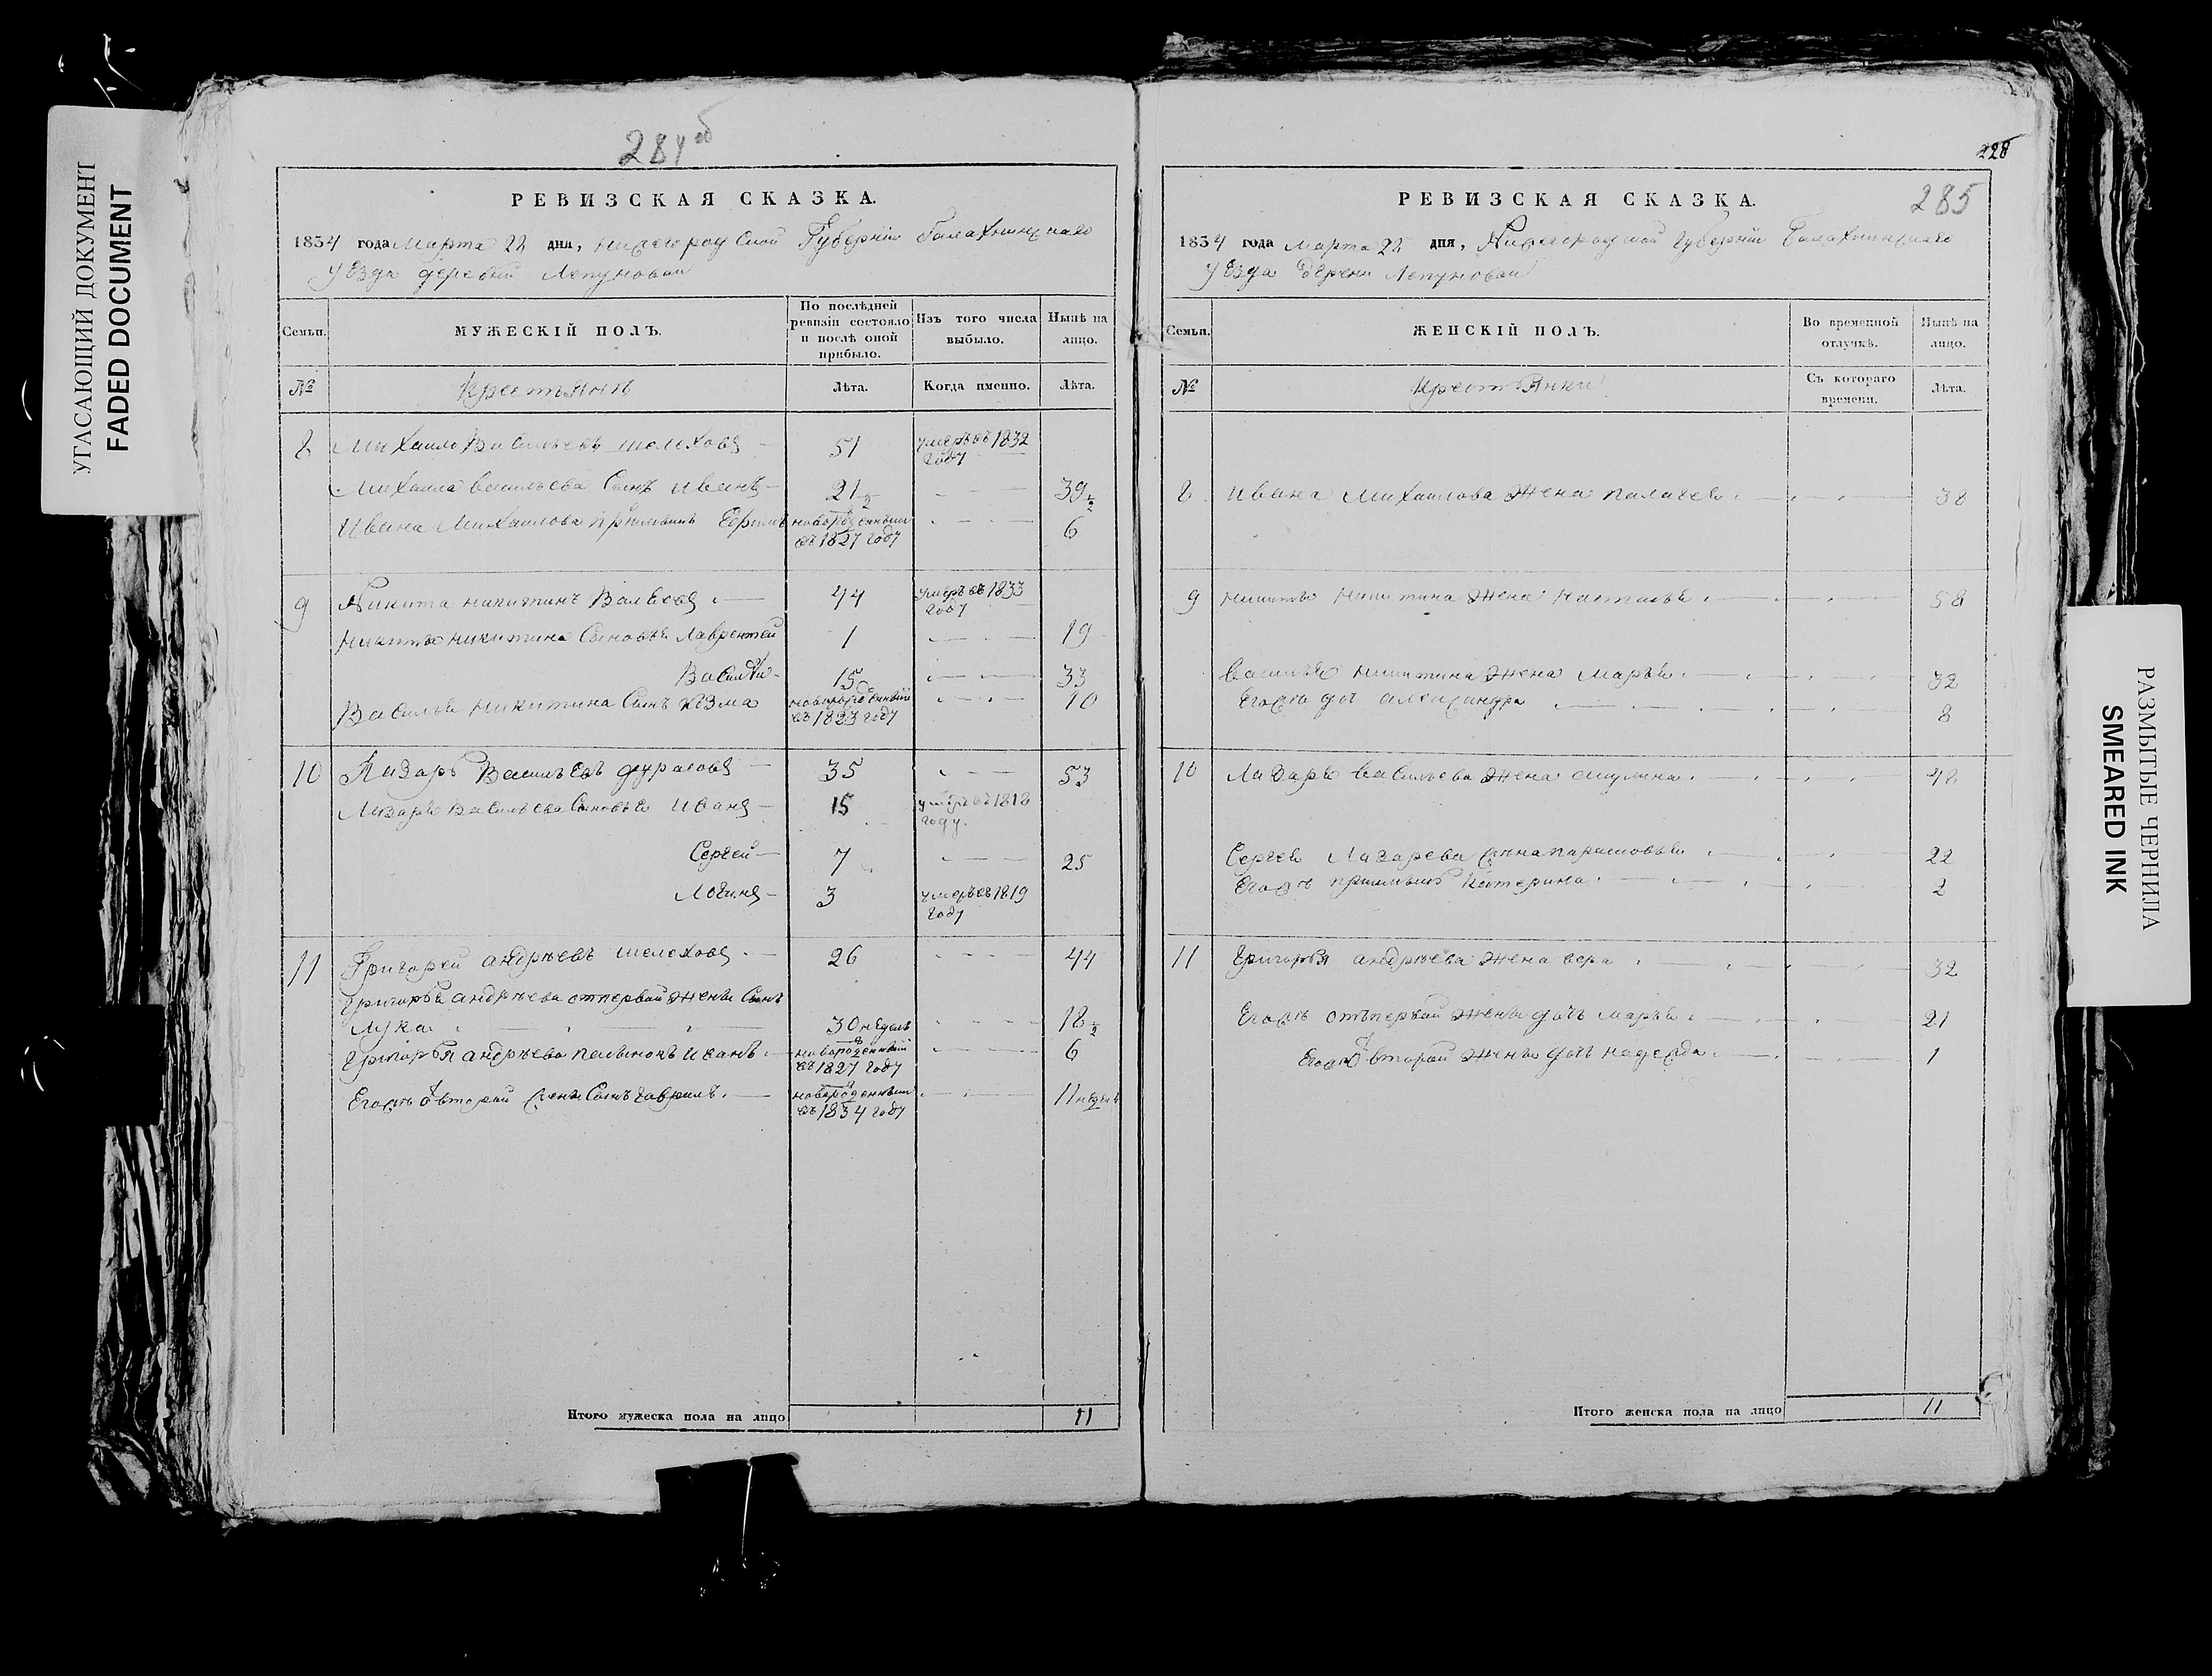 УГАСАЮЩИЙ ДОКУМЕНТ
FADED DOCUMENT
284об
РЕВИЗСКАЯ СКАЗКА.
1834 года Марта 22 дня, нижегородской Губерніи балахнинскаго
уезда деревни Лепуновой
Семьи. МУЖЕСКІЙ ПОЛЪ. По послѣдней ревизіи состояло и послѣ оной прибыло. Изъ того числа выбыло. Нынѣ на лицо.
№ Крестьянъ Лѣта. Когда именно. Лѣта.
8 Михаило Васильевъ 51 умеръ въ 1832 году
Михаила васильева Сынъ иванъ 21 1/2 39 1/2
Ивана Михаилова новорожденный въ 1827 году 6
9 Никита никитинъ 44 умеръ въ 1833 году
никиты никитина Сыновья Лаврентей 1 19
Василей 15 33
Василья никитина Сынъ козма новорожденный въ 1823 году 10
10 Лазарь Васильевъ 35 53
Лазаря Васильева Сыновья Иванъ 15 умеръ въ 1818 году.
Сергей 7 25
Логинъ 3 умеръ въ 1819 году
11 Григорей андреевъ шелеховъ 26 44
Григорья андреева отпервой жены Сынъ
Лука 30 недель 18 1/2
Григорья андреева иванъ новорожденный въ 1827 году 6
Егожъ от второй жены Сынъ гаврилъ новорожденный въ 1834 году 11 недель
Итого мужеска пола на лицо 11
228
285
РЕВИЗСКАЯ СКАЗКА.
1834 года марта 22 дня, Нижегородской губерніи Балахнинскаго
уезда дерени Лепуновой
Семьи. ЖЕНСКІЙ ПОЛЪ. Во временной отлучкѣ. Нынѣ на лицо.
№ Крестьянки Съ котораго времени. Лѣта.
8 ивана михаилова жена палагея 38
9 никиты никитина жена настасья 58
василья никитина жена марья 32
Егожъ дочь александра 8
10 Лазаря васильева жена акулина 48
Сергея Лазарева жена парасковья 22
Егожъ Катерина 2
11 Григорья андреева жена вера 32
Егожъ отъ первой жены дочь марья 21
Егожъ от второй жены дочь надежда 1
Итого женска пола на лицо 11
РАЗМЫТЫЕ ЧЕРНИЛА
SMEARED INK